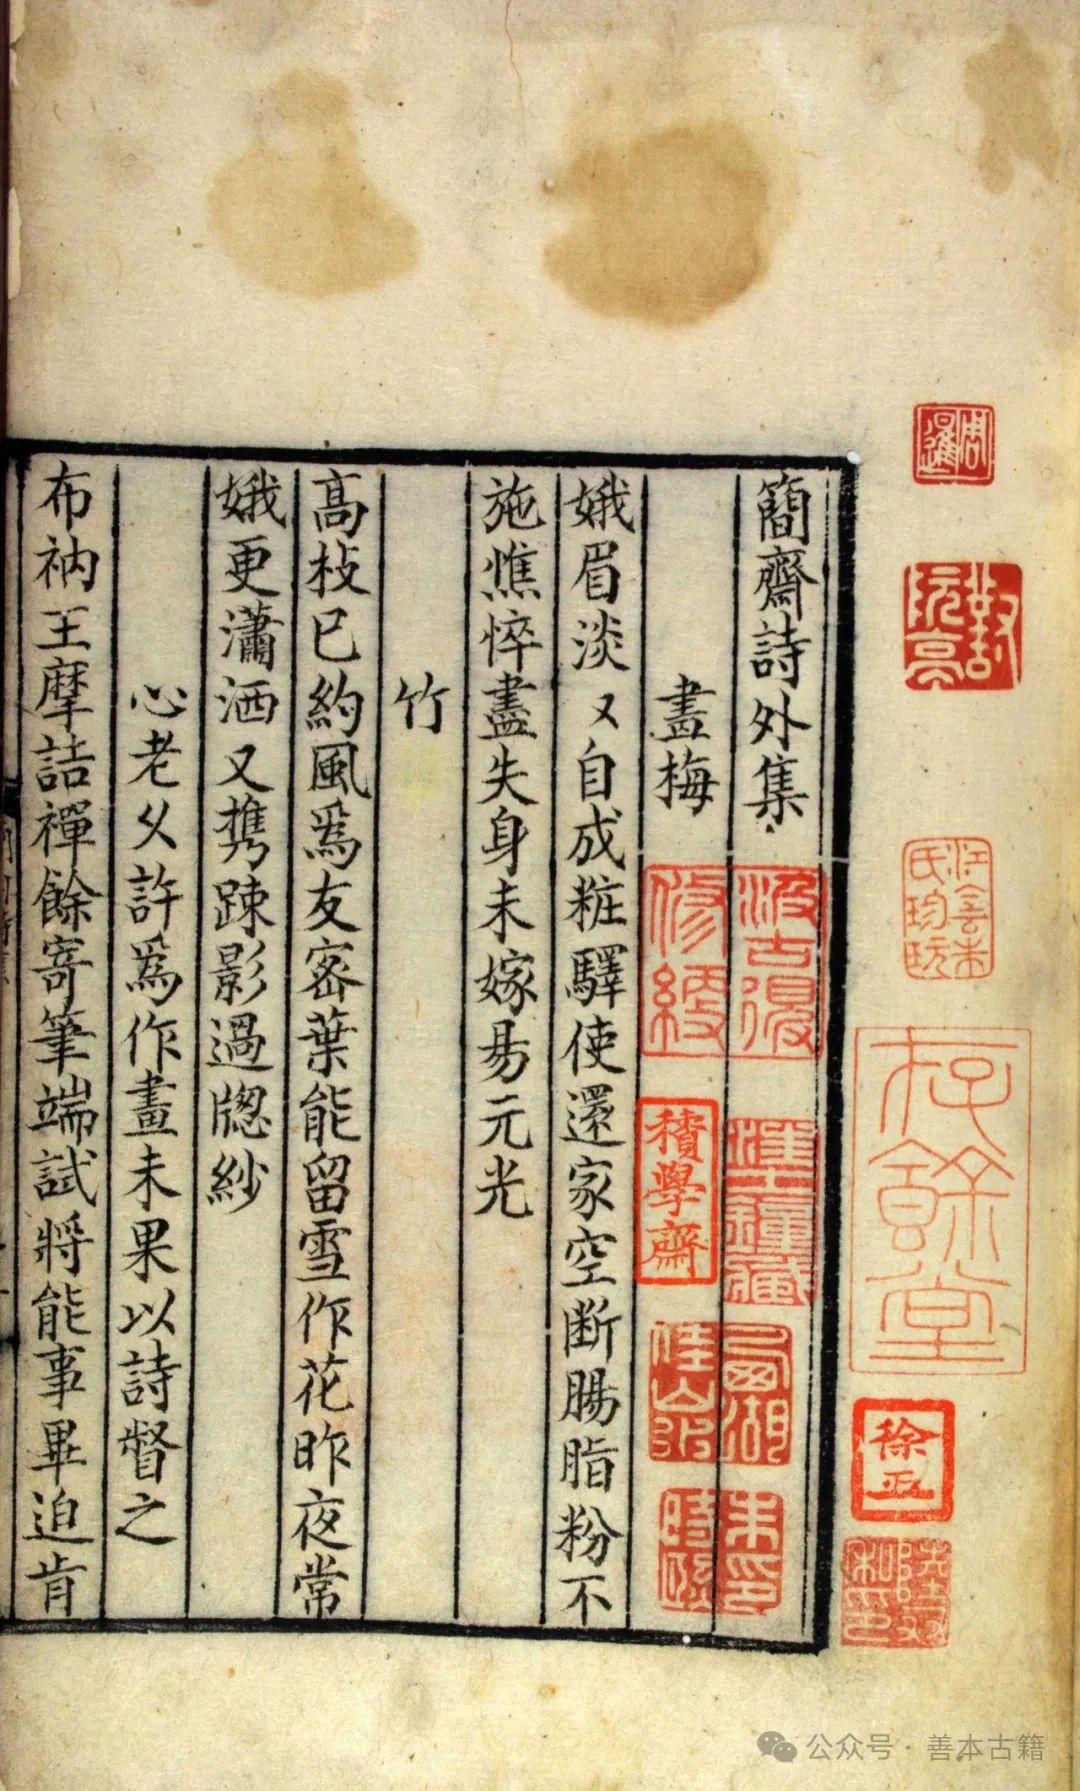 簡齋詩外集
畫梅
娥眉淡〻自成粧驛使還家空斷腸脂粉不
施憔悴盡失身未嫁易元光
竹
高枝已約風爲友密葉能留雪作花昨夜常
娥更瀟洒又携踈影過牕紗
心老久許爲作畫未果以詩督之
布衲王摩詰禪餘寄筆端試將能事畢迫肯
汲古得
修綆
積學齋
西湖
朱印
時隆
佳山
徐
公众号·善本古籍